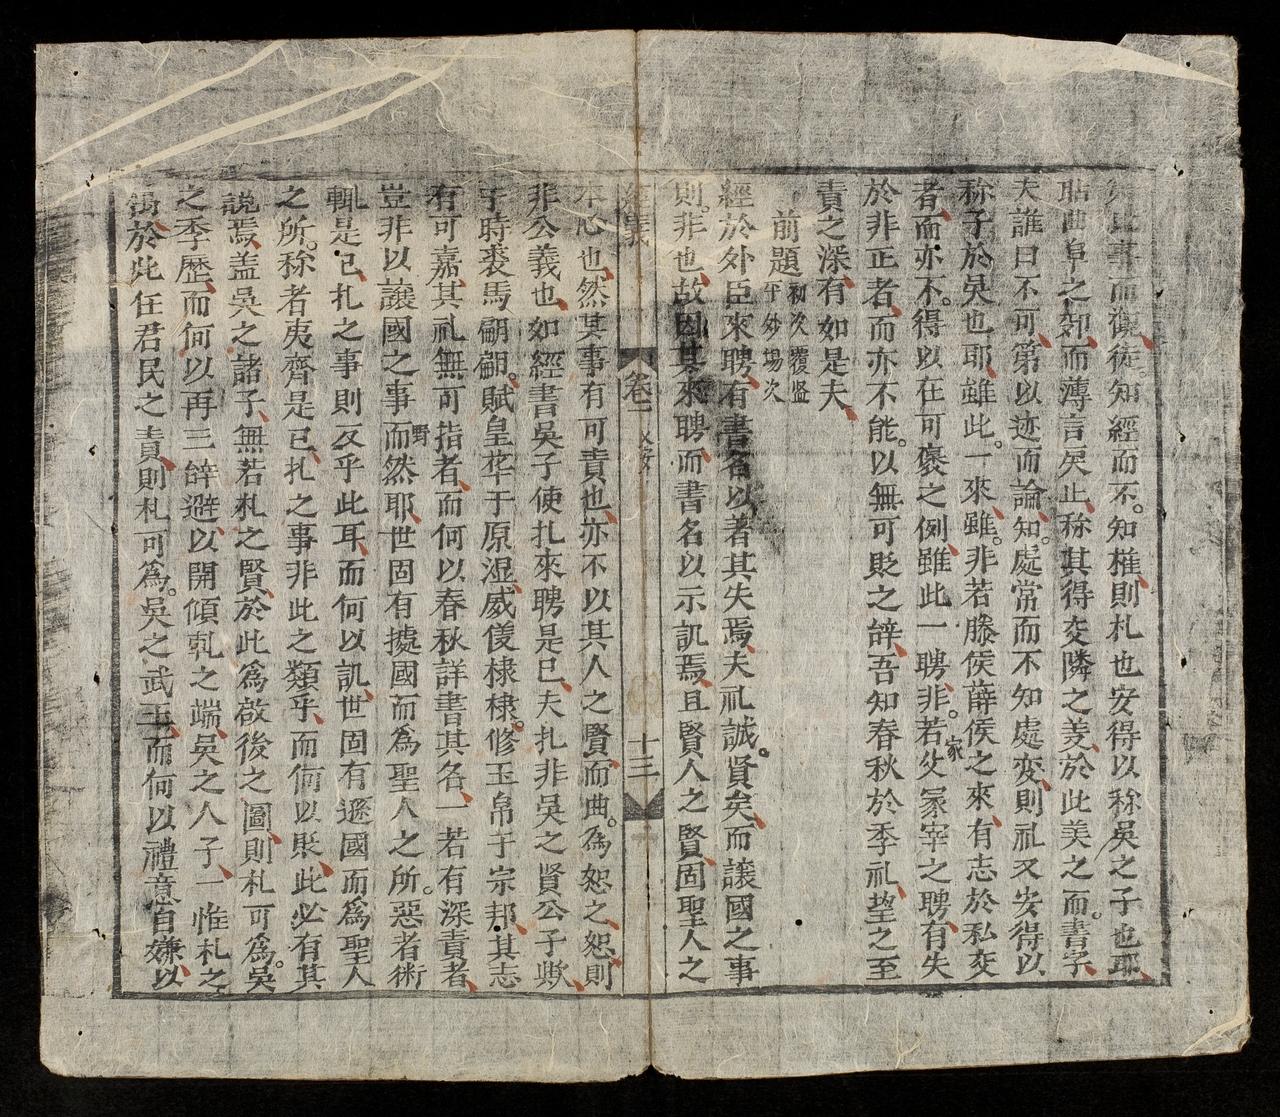 事而徒知經而不知權則札也安得以稱吴之子也耶
曲阜之郊而薄言戾止稱其得交隣之羑於此美之而書字
夫誰曰不可第以迹而論知處常而不知處変則礼又安得以
稱子於吳也耶雖此一來雖非若滕侯薛侯之來有志於私交
者而亦不得以在可褒之例雖此一聘非若父冢宰之聘有失
家
於非正者而亦不能以無可貶之辞吾知春秋於季礼望之至
責之深有如是夫
前題
初次覆監
平妙場次
經於外臣來聘有書名以著其失焉夫礼誠賢矣而讓國之事
則非也故因其來聘而書名以示訊焉且賢人之賢固聖人之
經義
卷二
十三
本心也然其事有可責也亦不以其人之賢而曲為恕之恕則
非公義也如經書吳子使扎來聘是已夫扎非吳之賢公子欤
于時裘馬翩翩賦皇華于原湿威儀棣棣修玉帛于宗邦其志
有可嘉其礼無可指者而何以春秋詳書其名一若有深責者
豈非以讓國之事而然耶世固有據國而為聖人之所惡者術
野
輒是已扎之事則反乎此耳而何以訊世固有遜國而為聖人
之所稱者夷齊是已扎之事非此之類乎而何以貶此必有其
說焉盖吳之諸子無若札之賢於此為啟後之圖則札可為吳
之季歷而何以再三辞避以開傾軋之端吳之人子一惟札之
於此任君民之責則札可為吳之武王而何以禮意自嫌以